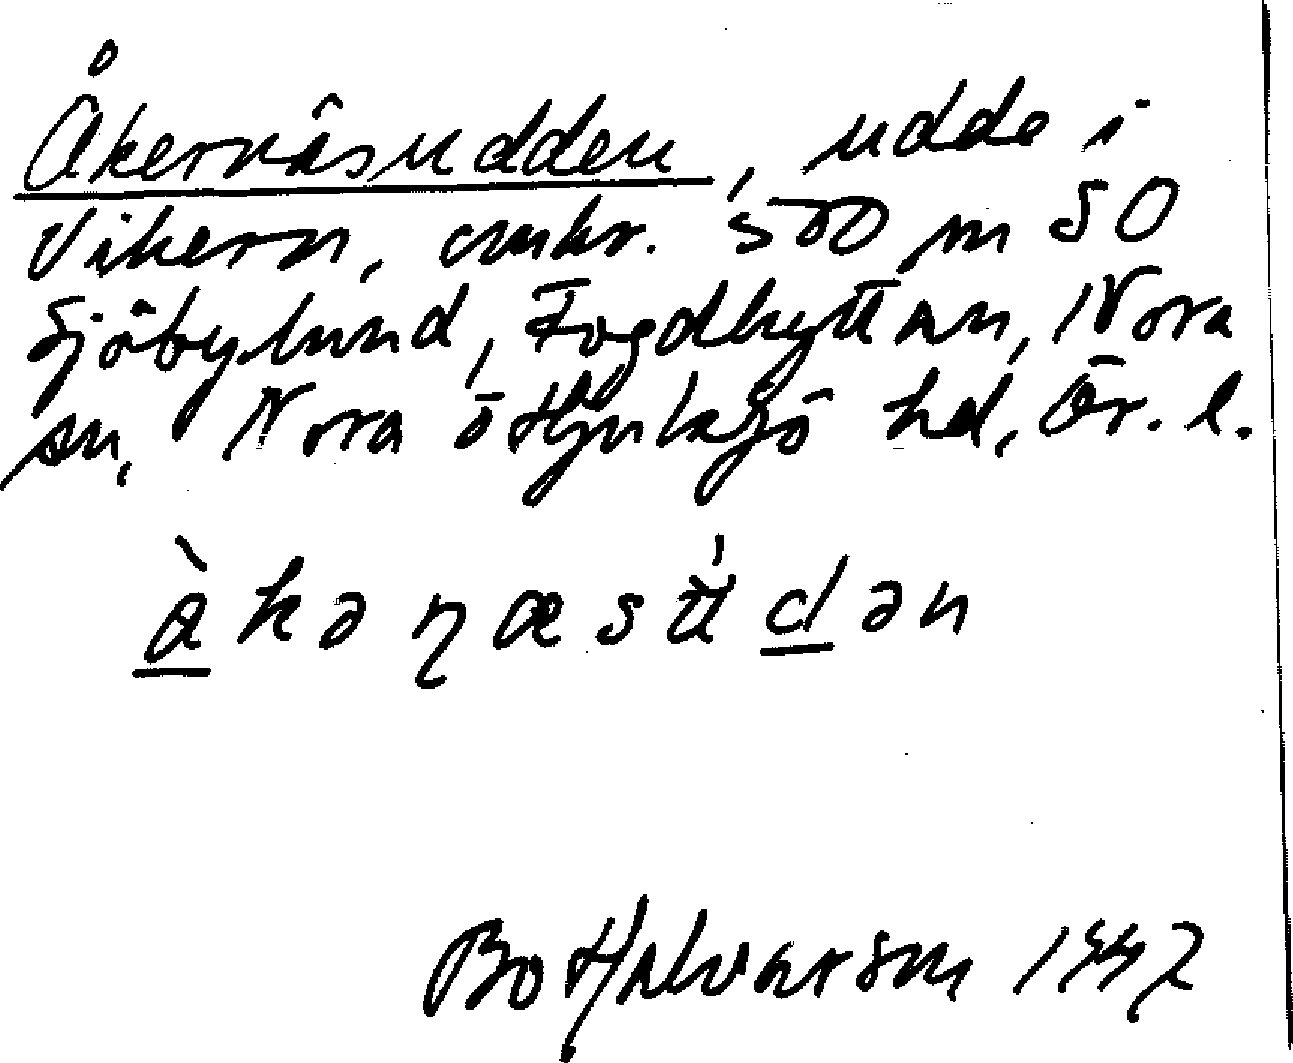 Åkernäsudden, udde i
Vikern, omkr. 500 m SO
Sjöbylund, Fogdhyttan, Nora
sn, Nora o Hjulsjö hd, Ör. l.
àkəɳæsʉ́dən
Bo Halvarson 1942